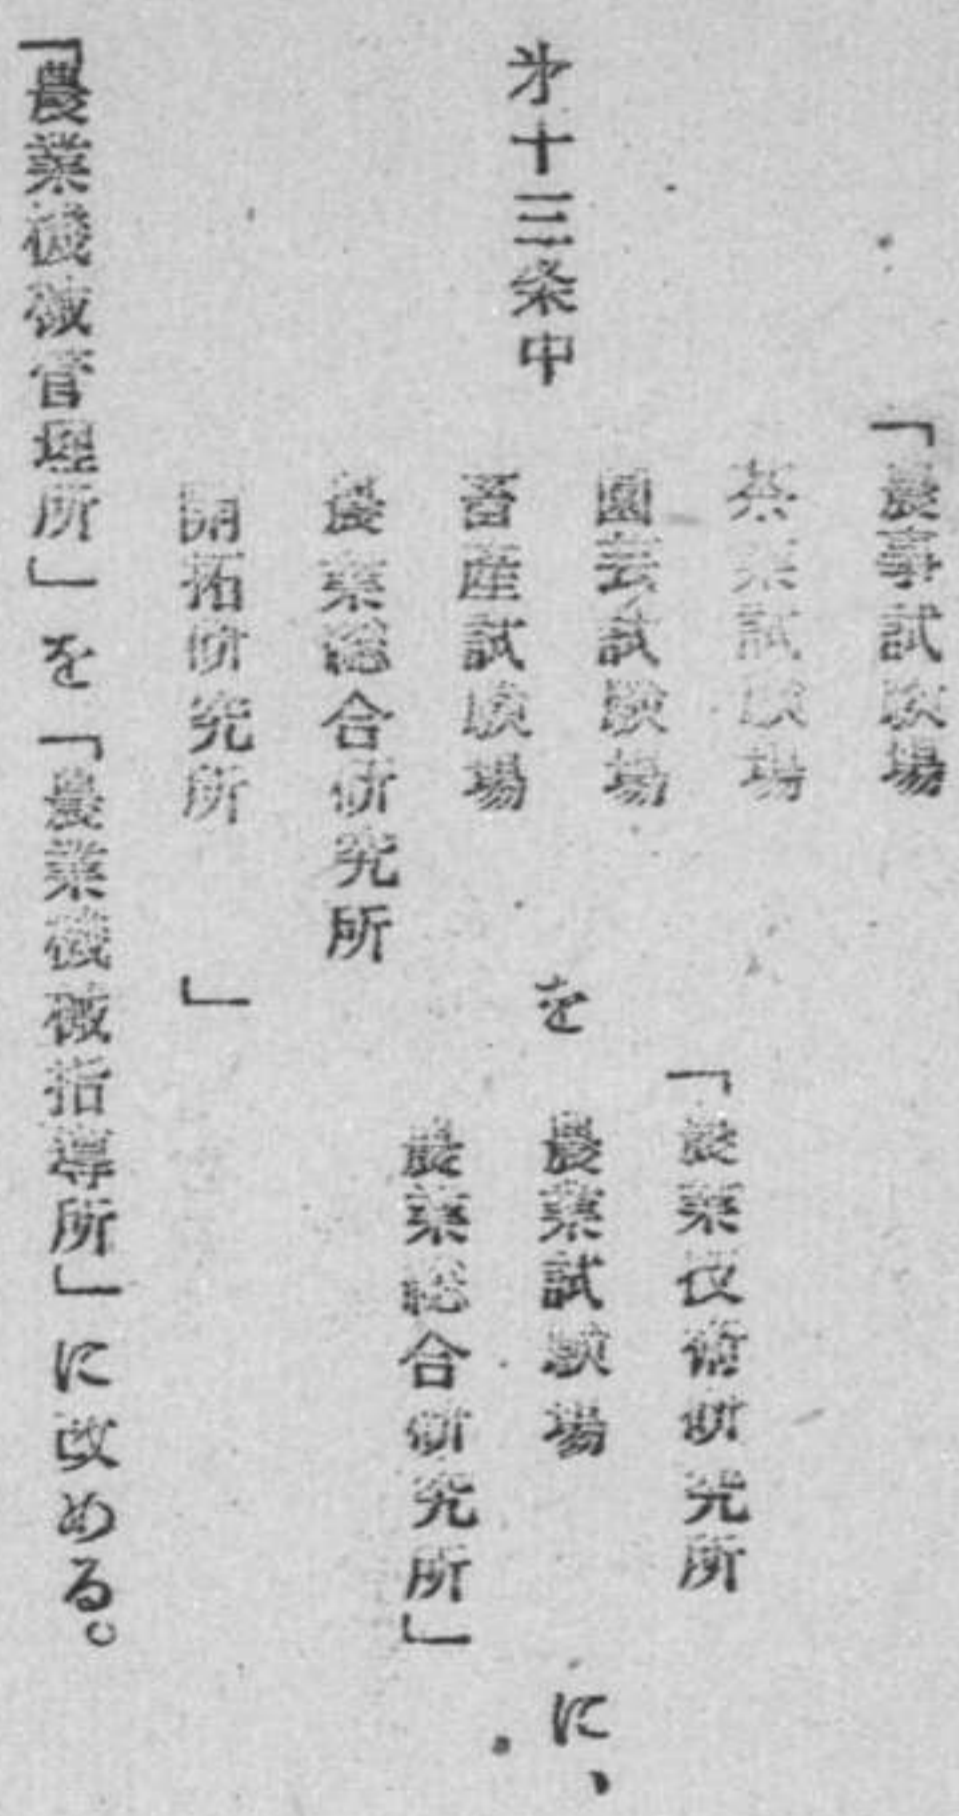 才十三条中
「農事試験場
茶業試験場
園芸試験場
畜産試験場
農業総合研究所
開拓研究所」
を
「農業技術研究所
農業試験場
農業総合研究所」
に、
「農業機械管理所」を「農業機械指導所」に改める。